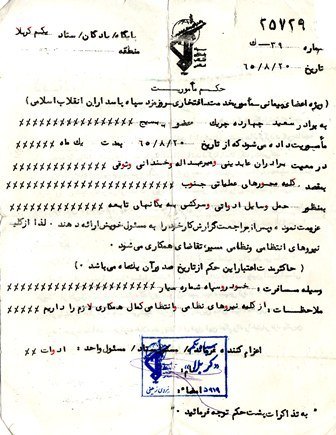 ۲۵۷۲۹
پایگاه/پادگان/ستاد یکم کربلا
منطقه
شماره ۳۹ - ک
تاریخ ۶۵/۸/۲۰
حکم مأموریت
(ویژه اعضای پیمانی مأمور بخدمت افتخاری روزمزد سپاه پاسداران انقلاب اسلامی)
به برادر سعید چهارده چریک عضو بسیج ××××××××××××××××
مأموریت داده میشود که از تاریخ ۶۵/۸/۲۰ بمدت یک ماه ×××××××
در معیت برادران عابدینی و میرعبداله رخندانی وثوقی ××××××××××
بمقصد کلیه محورهای عملیاتی جنوب ××××××××××××××××
بمنظور حمل وسایل ادواتی و سرکشی به یگانهای تابعه ×××××××
عزیمت نموده و پس از مراجعت گزارش کار خود را به مسئول خویش ارائه دهند. لذا از کلیه
نیروهای انتظامی و نظامی مسیر تقاضای همکاری می‌شود
(حداکثر مدت اعتبار این حکم از تاریخ صدور آن یکماه می‌باشد)
وسیله مسافرت: خودرو سپاه شماره سیار ××××××××××××××××
ملاحظات: از کلیه نیروهای نظامی و انتظامی کمال همکاری لازم را داریم ××××
اعزام کننده فرمانده / مسئول واحد: ادوات ××
کربلا
امضاء:
به تذکرات پشت حکم توجه فرمائید.